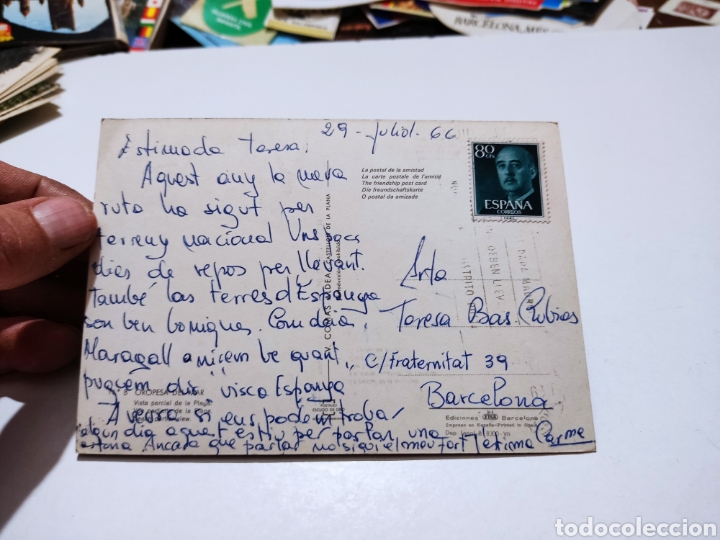 29 - Juliol - 66
Estimada Teresa:
Aquest any la meva
ruta ha sigut per
terreny nacional Uns pocs
dies de repos per Llevant.
També las terres d'Espanya
son ben boniques. Com deia
Maragall a mi em be quant
puguem dir visca Espanya
A veure si ens podem trobar
algun dia aquest estiu per parlar una
estona. Ancara que parlar no sigui el meu fort
Carme
La postal de la amistad
La carte postale de l'amitié
The friendship post card
Die freundschaftskarte
O postal da amizade
80 CTS
ESPAÑA
CORREOS
Srta
Teresa Bas Rubires
c/Fraternitat 39
Barcelona
OROPESA DEL MAR
Vista parcial de la Playa
Ediciones Barcelona
Impreso en España-Printed in Spain
BARCELONA
todocoleccion